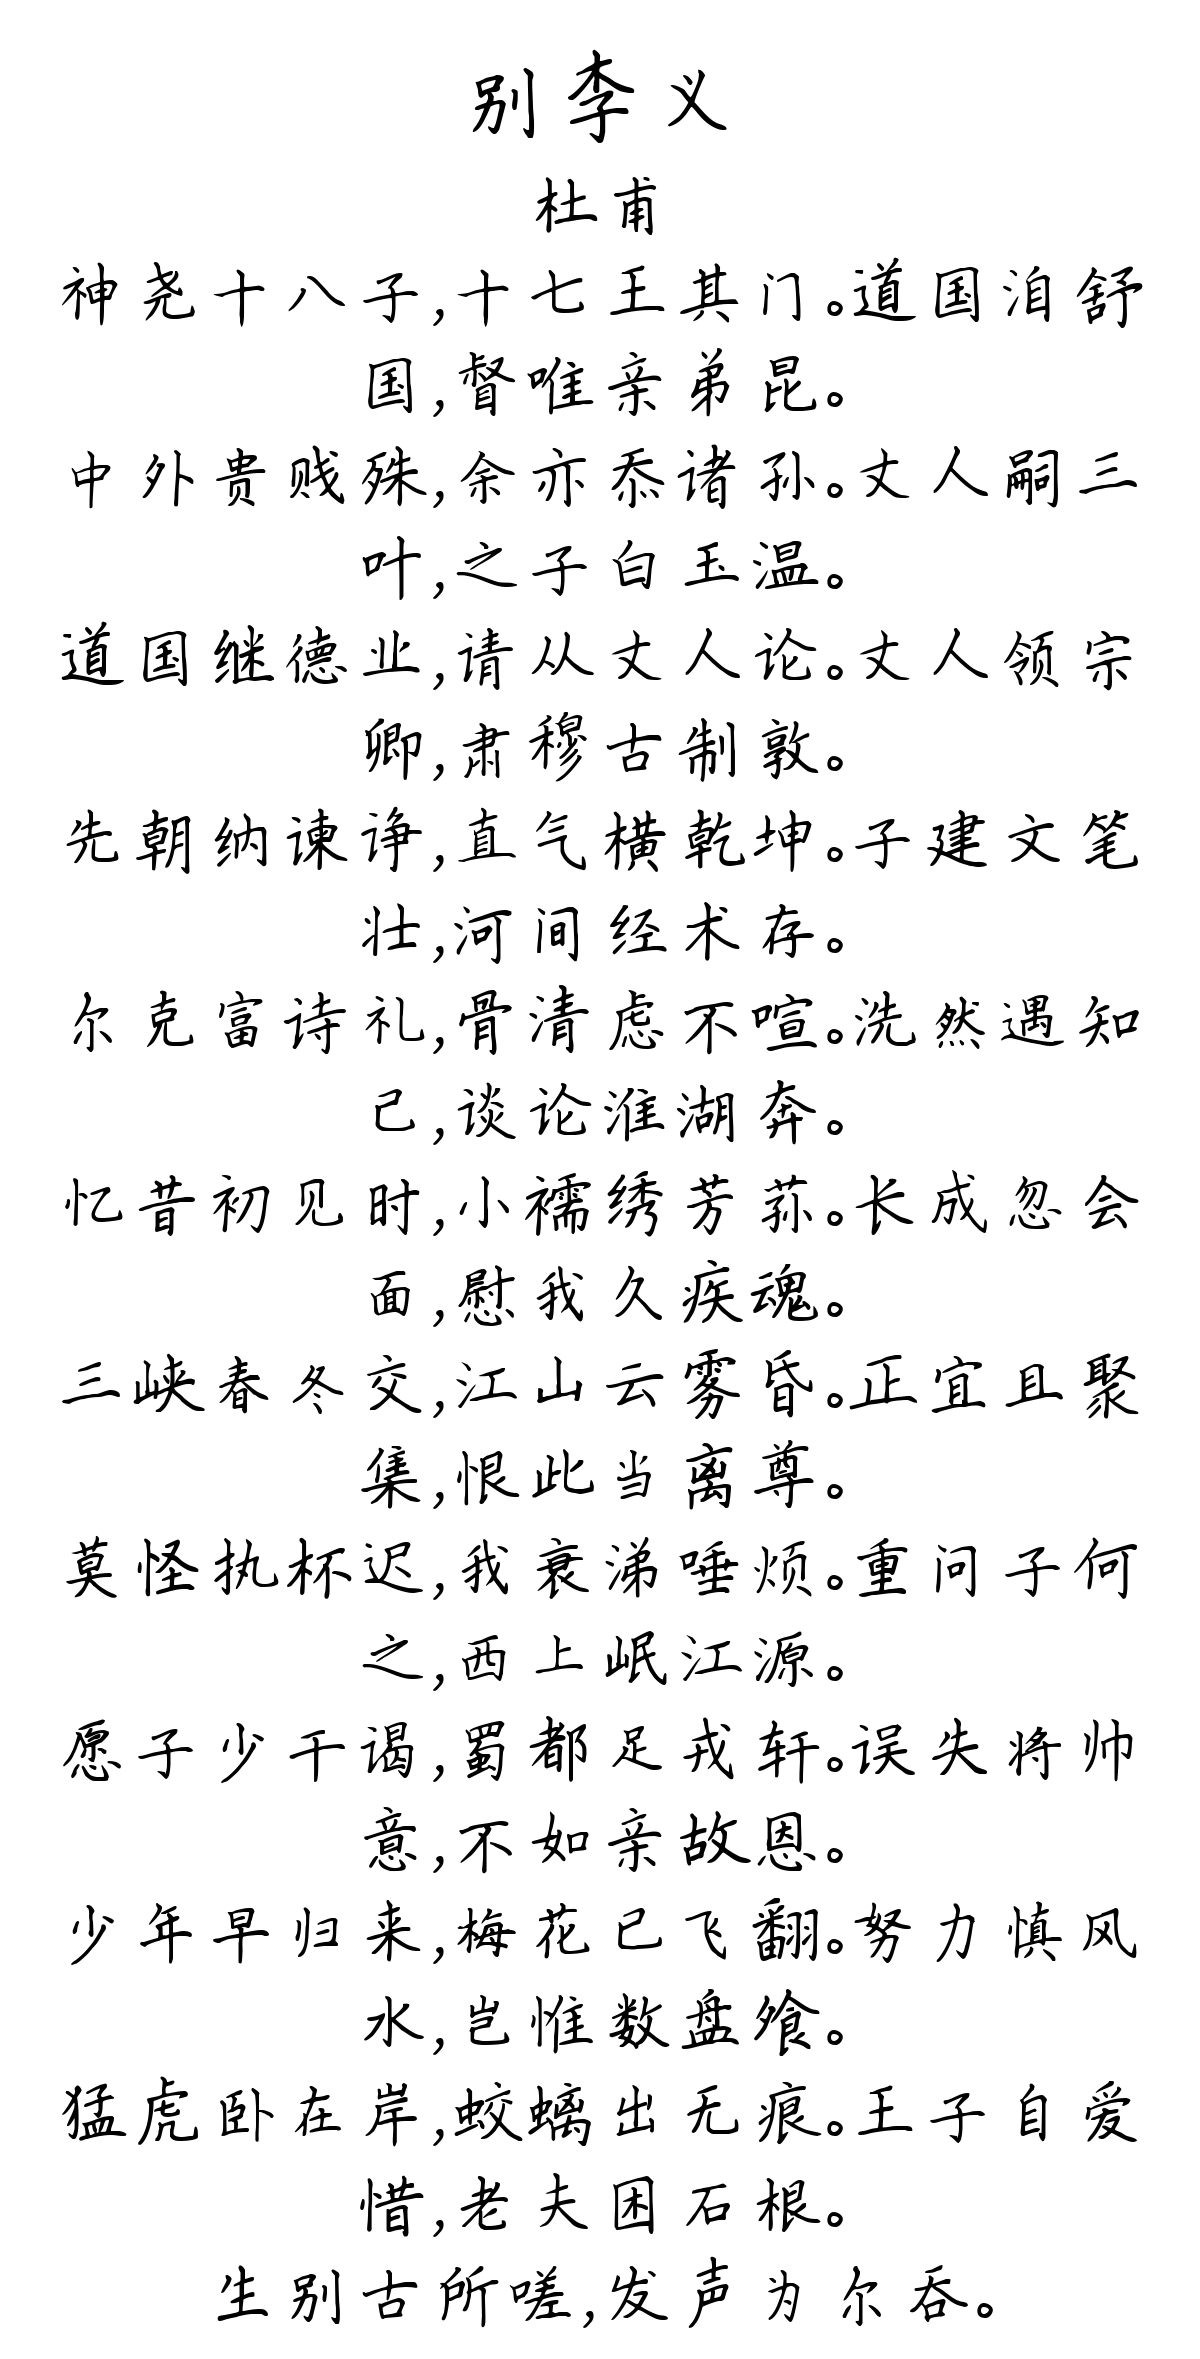 别李义
杜甫
神尧十八子,十七王其门。道国洎舒
国,督唯亲弟昆。
中外贵贱殊,余亦忝诸孙。丈人嗣三
叶,之子白玉温。
道国继德业,请从丈人论。丈人领宗
卿,肃穆古制敦。
先朝纳谏诤,直气横乾坤。子建文笔
壮,河间经术存。
尔克富诗礼,骨清虑不喧。洗然遇知
己,谈论淮湖奔。
忆昔初见时,小襦绣芳荪。长成忽会
面,慰我久疾魂。
三峡春冬交,江山云雾昏。正宜且聚
集,恨此当离尊。
莫怪执杯迟,我衰涕唾烦。重问子何
之,西上岷江源。
愿子少干谒,蜀都足戎轩。误失将帅
意,不如亲故恩。
少年早归来,梅花已飞翻。努力慎风
水,岂惟数盘飧。
猛虎卧在岸,蛟螭出无痕。王子自爱
惜,老夫困石根。
生别古所嗟,发声为尔吞。